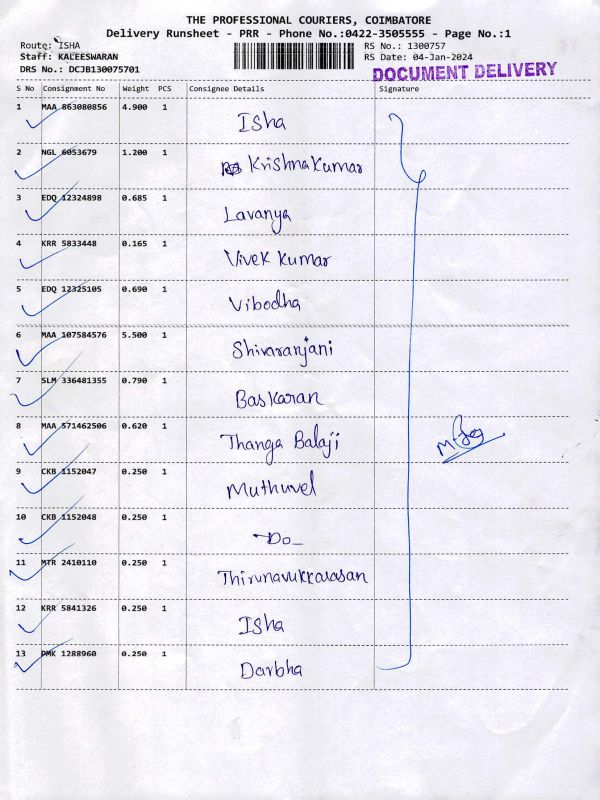 THE PROFESSIONAL COURIERS, COIMBATORE
Delivery Runsheet - PRR - Phone No.:0422-3505555 - Page No.:1
Route: ISHA
RS No.: 1300757
Staff: KALEESWARAN
RS Date: 04-Jan-2024
DRS No.: DCJB130075701
DOCUMENT DELIVERY
S No Consignment No Weight PCS Consignee Details Signature
1 MAA 863080856 4.900 1 Isha
2 NGL 6053679 1.200 1 Krishna Kumar
3 EDQ 12324898 0.685 1 Lavanya
4 KRR 5833448 0.165 1 Vivek Kumar
5 EDQ 12325105 0.690 1 Vibodha
6 MAA 107584576 5.500 1 Shivaranjani
7 SLM 336481355 0.790 1 Baskaran
8 MAA 571462506 0.620 1 Thanga Balaji
9 CKB 1152047 0.250 1 Muthuvel
10 CKB 1152048 0.250 1 -Do-
11 MTR 2410110 0.250 1 Thirunavukkarasan
12 KRR 5841326 0.250 1 Isha
13 PMK 1288960 0.250 1 Darbha